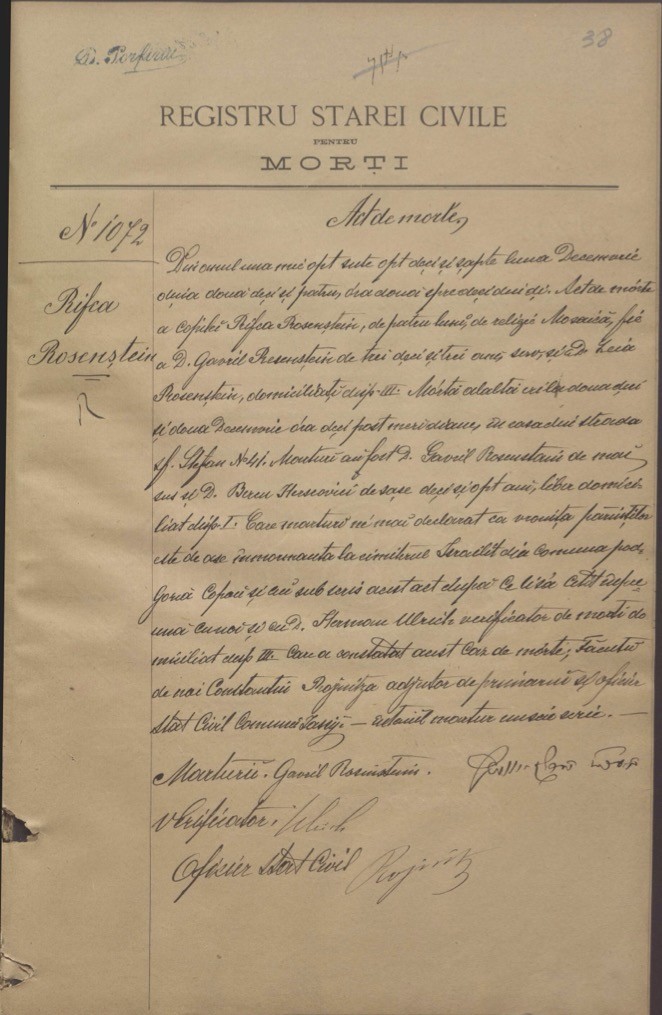 38
REGISTRU STAREI CIVILE
PENTRU
MORȚI
Act de morte
Nº 1072
Rifca
Rosenștein
R
Din anul una mie opt sute opt deci și șapte luna Decemvrie
diua douai deci și patru, óra douoi spre deci din di. Act de mórte
a copilei Rifca Rosenștein, de patru luni, de religie Mosaică, fiă
a D. Gavril Rosenștein de trei deci și trei ani, și a D. Leia
Rosenștein, domiciliați disp. III. Mórtă alaltă eri la doua deci
și doua Decemvrie óra deci post meridiane, in casa din strada
sf. Ștefan Nº 41. Marturi au fost D. Gavril Rosenstein de mai
sus și D. Bercu Herscovici de șase deci și opt ani, liber domici
liat disp. I. Care marturi ne mai declarat ca voința părinților
este de a se inmormanta la cimiterul Israelit din comuna pod,
goria Copou și au sub scris acest act dupa ce li sa cetit inpre
ună cu noi și cu D. Herman Ulrich verificator de morti do
miciliat disp III. Care a constatat acest caz de mórte; Făcutu
de noi Constantin Rojnitza adjutor de primariu și oficir
stat Civil Comunei Iassy. — martur nu scie scrie. —
Marturii. Gavril Rosinstein.
Verificator. Ulrich
Oficier Stat Civil Rojnitza